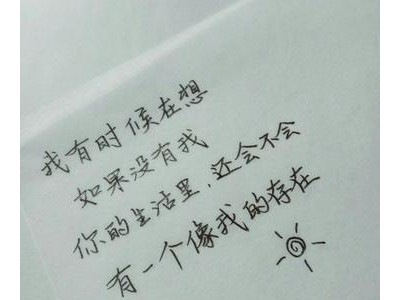 我有时候在想
如果没有我
你的生活里，还会不会
有一个像我的存在